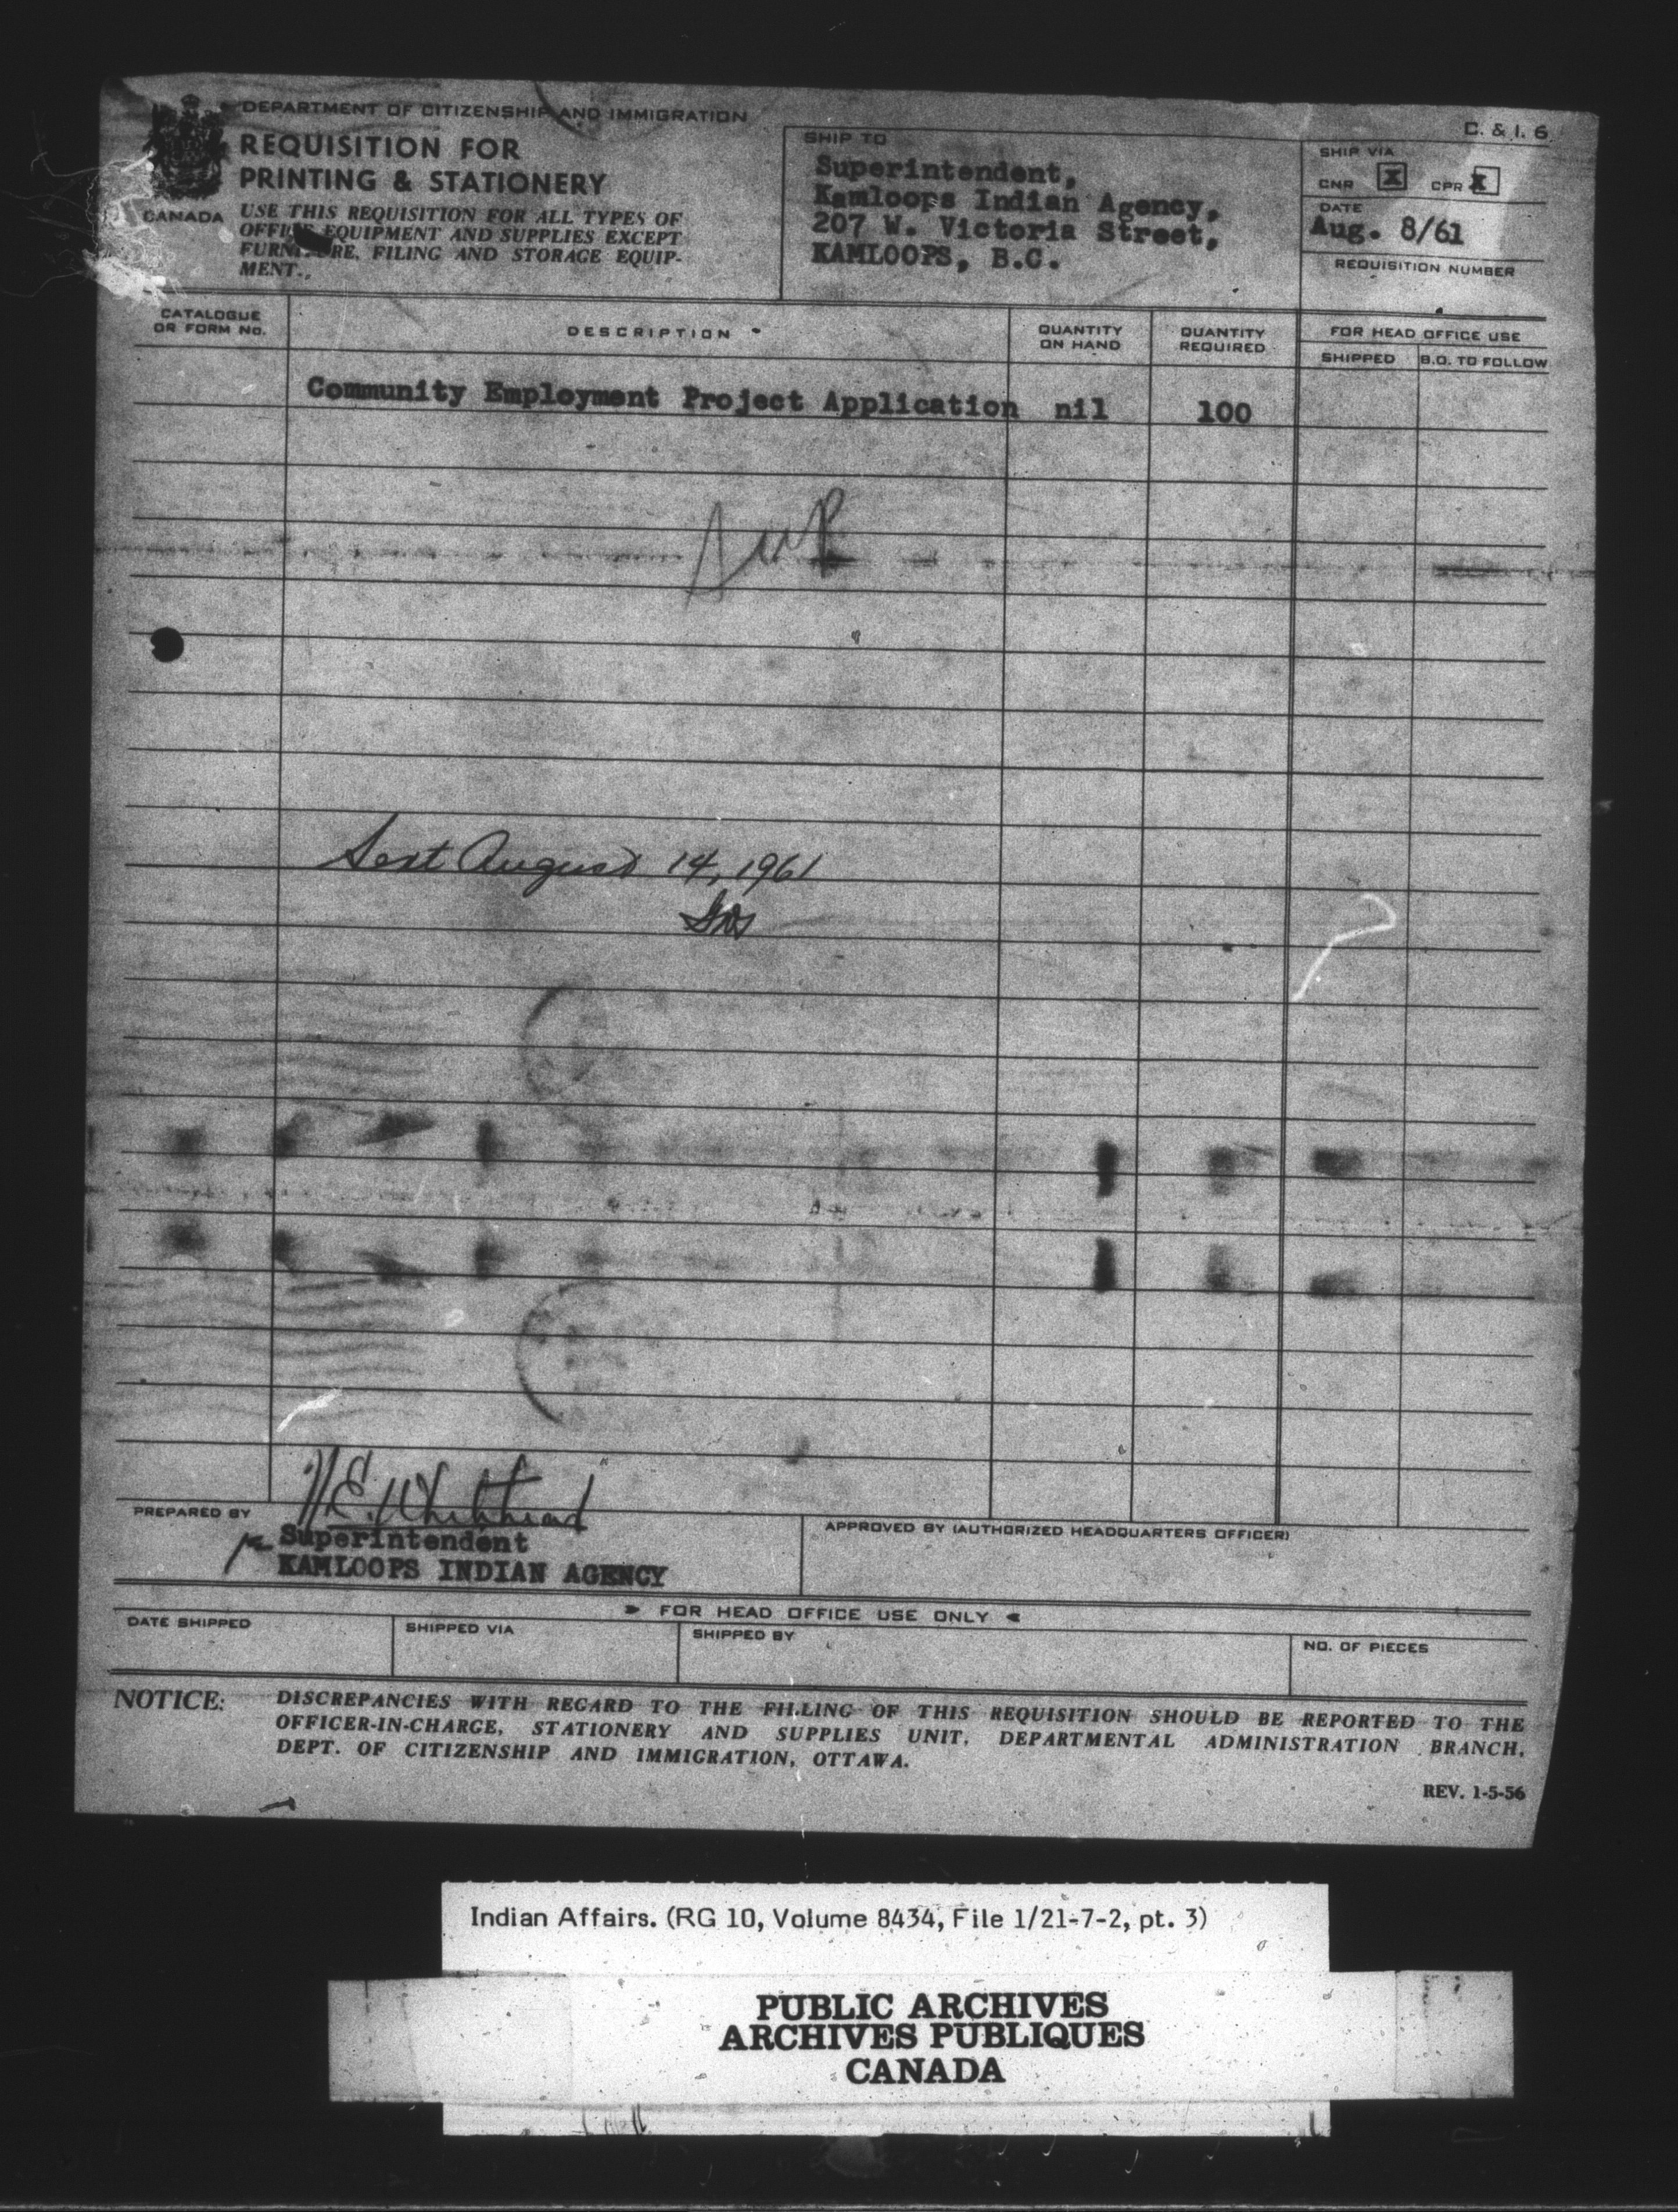 DEPARTMENT OF CITIZENSHIP AND IMMIGRATION
C. & I. 6
REQUISITION FOR
PRINTING & STATIONERY
CANADA
USE THIS REQUISITION FOR ALL TYPES OF
OFFICE EQUIPMENT AND SUPPLIES EXCEPT
FURNITURE, FILING AND STORAGE EQUIP-
MENT.
SHIP TO
Superintendent,
Kamloops Indian Agency,
207 W. Victoria Street,
KAMLOOPS, B.C.
SHIP VIA
CNR X CPR X
DATE
Aug. 8/61
REQUISITION NUMBER
CATALOGUE
OR FORM NO.
DESCRIPTION
QUANTITY
ON HAND
QUANTITY
REQUIRED
FOR HEAD OFFICE USE
SHIPPED B.O. TO FOLLOW
Community Employment Project Application nil 100
Sent August 14, 1961
PREPARED BY
Superintendent
KAMLOOPS INDIAN AGENCY
APPROVED BY (AUTHORIZED HEADQUARTERS OFFICER)
FOR HEAD OFFICE USE ONLY
DATE SHIPPED
SHIPPED VIA
SHIPPED BY
NO. OF PIECES
NOTICE: DISCREPANCIES WITH REGARD TO THE FILLING OF THIS REQUISITION SHOULD BE REPORTED TO THE
OFFICER-IN-CHARGE, STATIONERY AND SUPPLIES UNIT, DEPARTMENTAL ADMINISTRATION BRANCH,
DEPT. OF CITIZENSHIP AND IMMIGRATION, OTTAWA.
REV. 1-5-56
Indian Affairs. (RG 10, Volume 8434, File 1/21-7-2, pt. 3)
PUBLIC ARCHIVES
ARCHIVES PUBLIQUES
CANADA